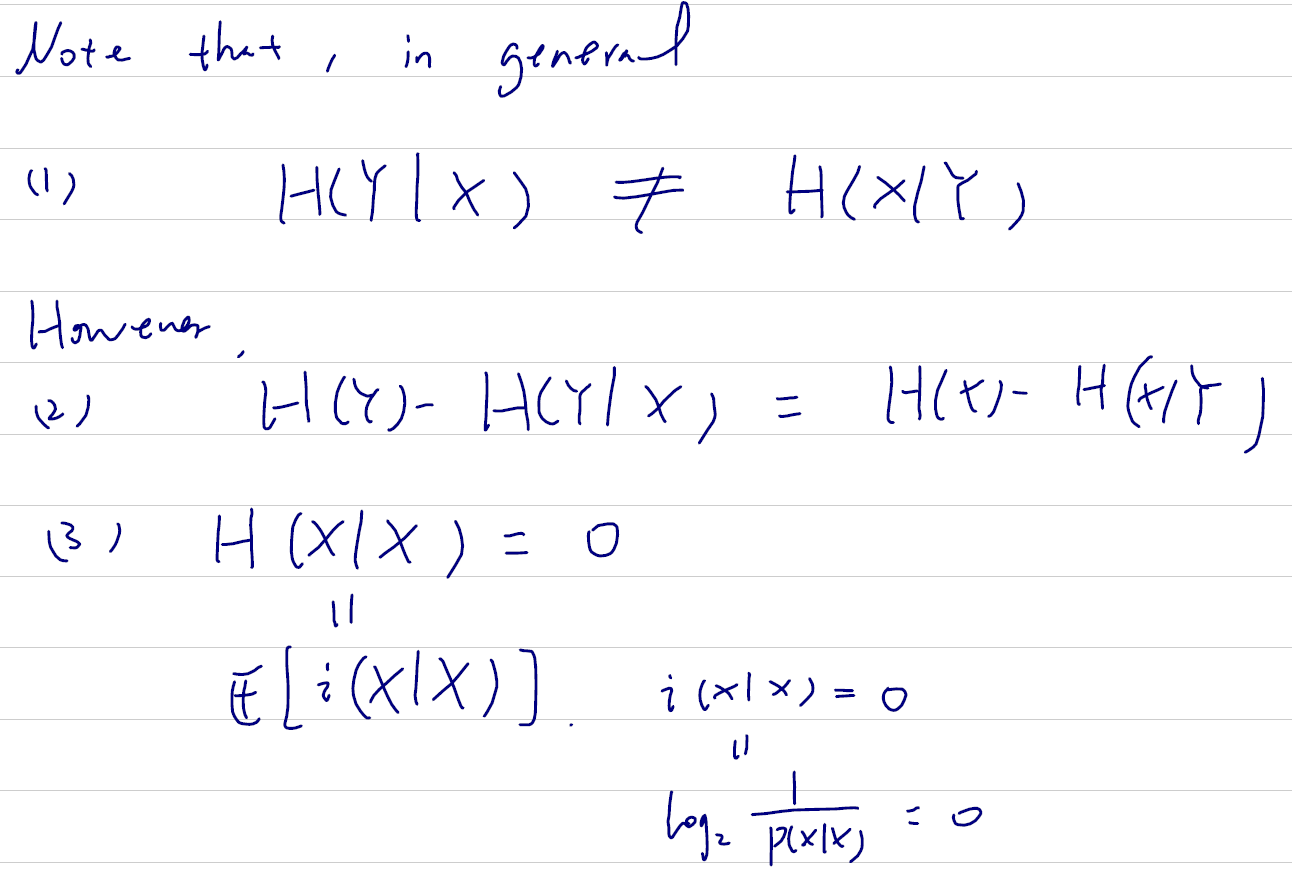 Note that, in general
(1) H(Y|X) ≠ H(X|Y)
However,
(2) H(Y)- H(Y|X) = H(X)- H(X|Y)
(3) H(X|X) = 0
||
E[i(X|X)]. i(x|x) = 0
||
log₂ 1/p(x|x) = 0